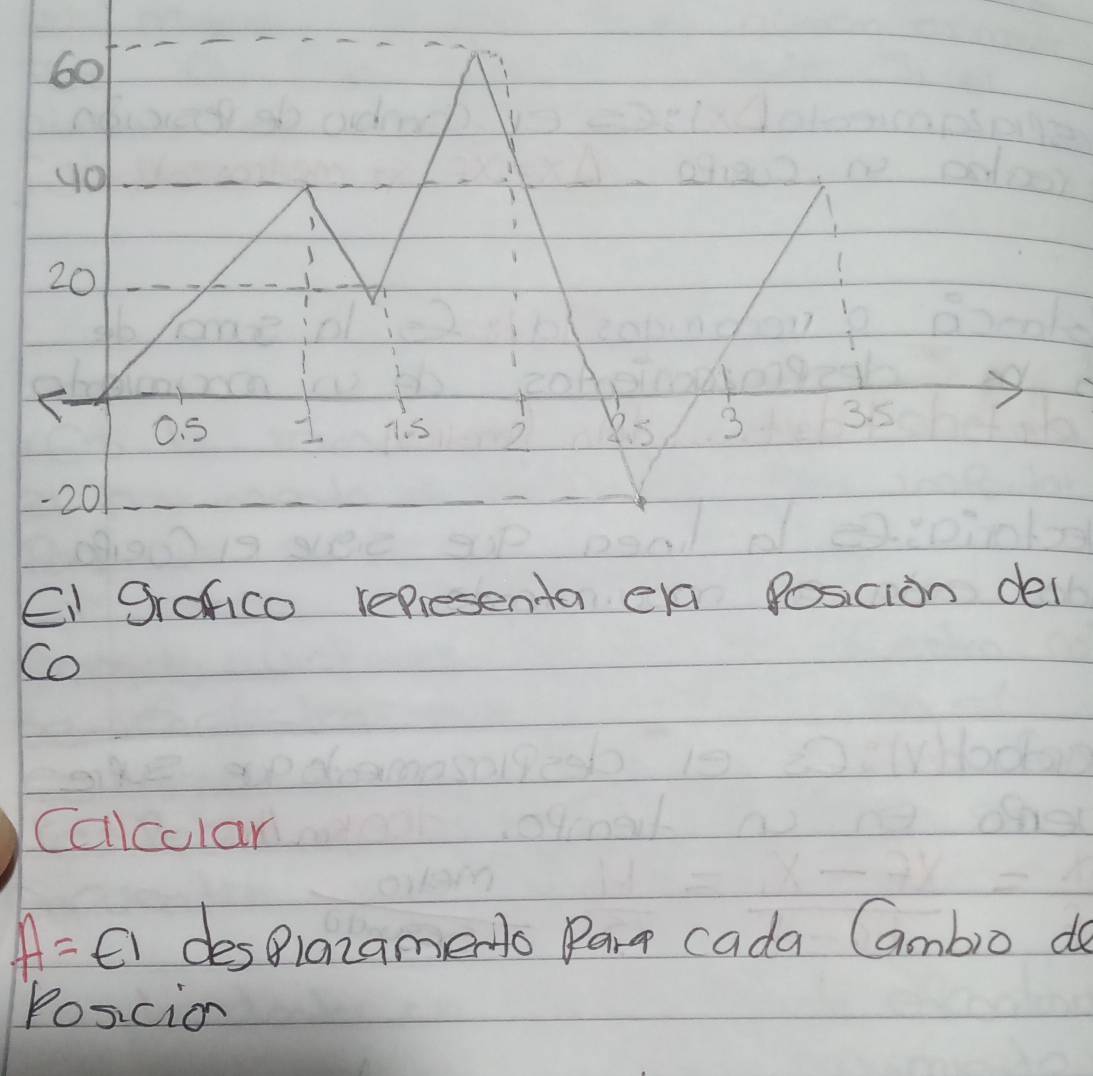 60
40
20
0.5 1 1.5 2 2.5 3 3.5
-20
El grafico representa ela Posición del
Co
Calcular
A= El desplazamento Para cada Cambio de
Posición